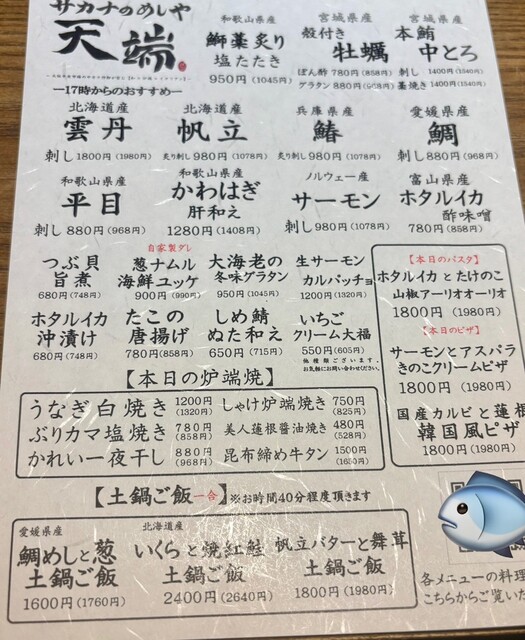 サカナのめしや
天端
ー17時からのおすすめー
和歌山県産
鰤藁炙り
塩たたき
950円(1045円)
宮城県産
殻付き
牡蠣
ぽん酢 780円(858円)
グラタン 880円(968円)
宮城県産
本鮪
中とろ
刺し 1400円(1540円)
藁焼き 1400円(1540円)
北海道産
雲丹
刺し 1800円(1980円)
北海道産
帆立
炙り刺し 980円(1078円)
兵庫県産
鰆
炙り刺し 980円(1078円)
愛媛県産
鯛
刺し 880円(968円)
和歌山県産
平目
刺し 880円(968円)
和歌山県産
かわはぎ
肝和え
1280円(1408円)
ノルウェー産
サーモン
刺し 980円(1078円)
富山県産
ホタルイカ
酢味噌
780円(858円)
つぶ貝
旨煮
680円(748円)
自家製ダレ
葱ナムル
海鮮ユッケ
900円(990円)
大海老の
冬味グラタン
950円(1045円)
生サーモン
カルパッチョ
1200円(1320円)
ホタルイカ
沖漬け
680円(748円)
たこの
唐揚げ
780円(858円)
しめ鯖
ぬた和え
650円(715円)
いちご
クリーム大福
550円(605円)
他種類ございます。
お気軽にお問い合わせください。
【本日のパスタ】
ホタルイカとたけのこ
山椒アーリオオーリオ
1800円(1980円)
【本日のピザ】
サーモンとアスパラ
きのこクリームピザ
1800円(1980円)
国産カルビと蓮根
韓国風ピザ
1800円(1980円)
【本日の炉端焼】
うなぎ白焼き 1200円(1320円)
ぶりカマ塩焼き 780円(858円)
かれい一夜干し 880円(968円)
しゃけ炉端焼き 750円(825円)
美人蓮根醬油焼き 480円(528円)
昆布締め牛タン 1500円(1650円)
【土鍋ご飯一合】※お時間40分程度頂きます
愛媛県産
鯛めしと葱
土鍋ご飯
1600円(1760円)
北海道産
いくらと焼紅鮭
土鍋ご飯
2400円(2640円)
帆立バターと舞茸
土鍋ご飯
1800円(1980円)
各メニューの料理
こちらからご覧いた